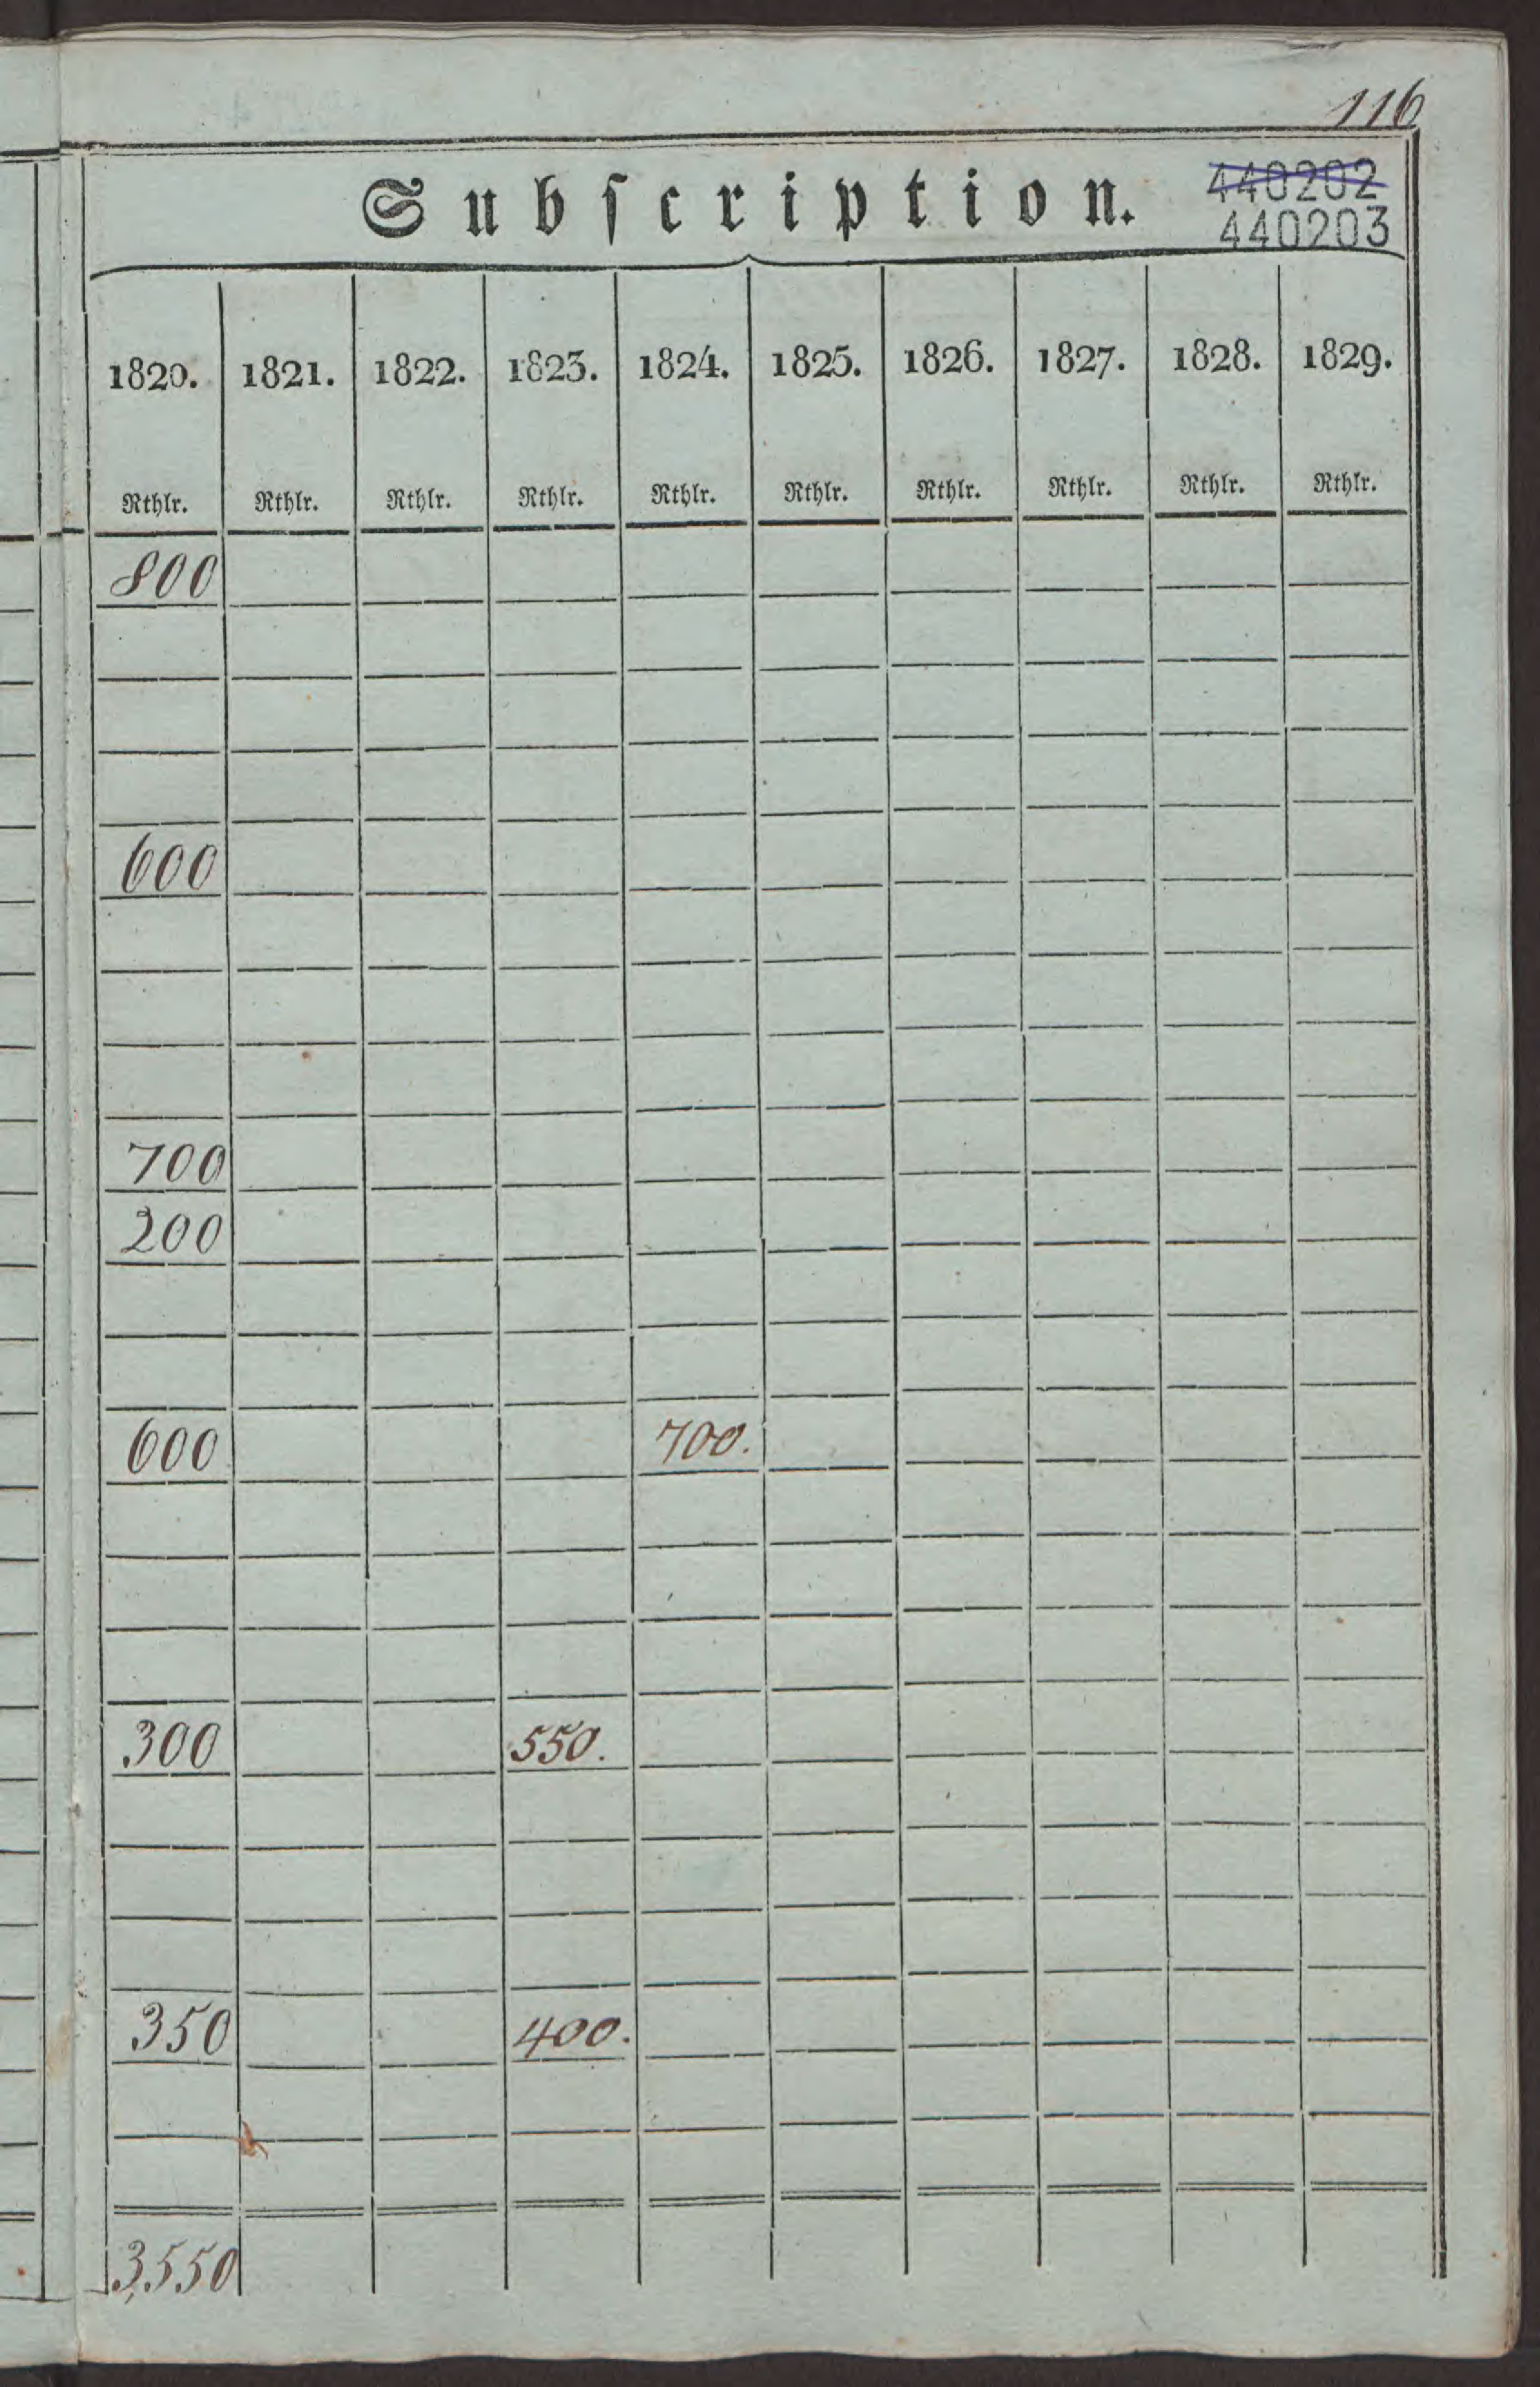 116
Subſcription.
440202
440203
1820. 1821. 1822. 1823. 1824. 1825. 1826. 1827. 1828. 1829.
Rthlr. Rthlr. Rthlr. Rthlr. Rthlr. Rthlr. Rthlr. Rthlr. Rthlr. Rthlr.
800
600
700
200
600 700.
300 550.
350 400.
3,550